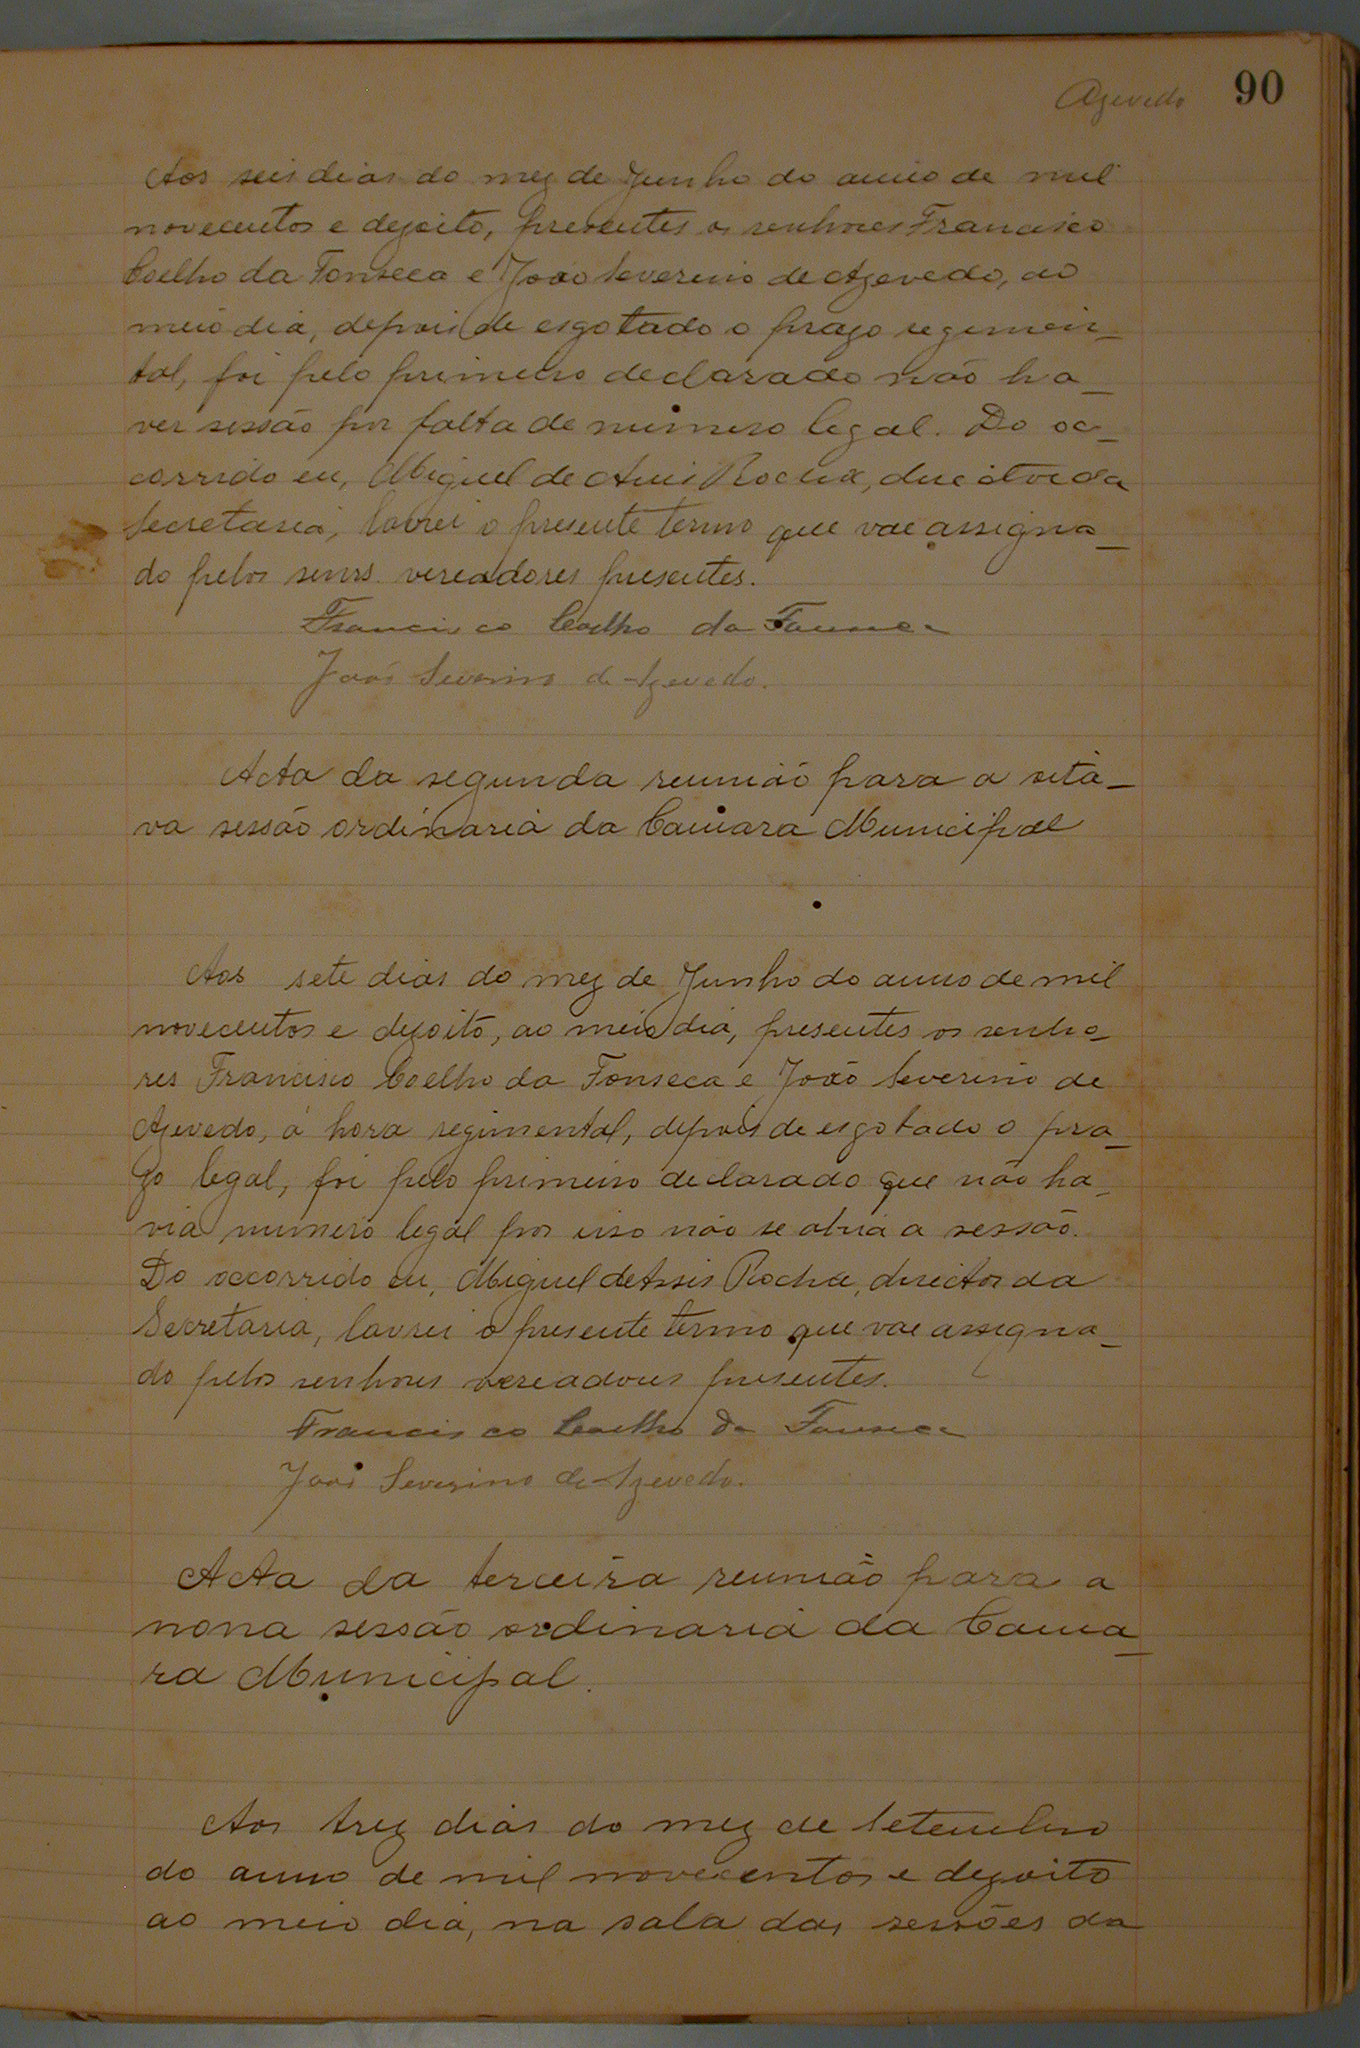 Azevedo 90
Aos seis dias do mez de Junho do anno de mil
novecentos e dezoito, presentes os senhores Francisco
Coelho da Fonseca e João Severino de Azevedo, ao
meio dia, depois de esgotado o prazo regimen_
tal, foi pelo primeiro declarado não ha_
ver sessão por falta de numero legal. Do oc_
corrido eu, Miguel de Assis Rocha, director da
Secretaria, lavrei o presente termo que vae assigna_
do pelos senrs vereadores presentes.
Francisco Coelho da Fonseca
João Severino de Azevedo.
Acta da segunda reunião para a oita_
va sessão ordinaria da Camara Municipal
Aos sete dias do mez de Junho do anno de mil
novecentos e dezoito, ao meio dia, presentes os senho_
res Francisco Coelho da Fonseca e João Severino de
Azevedo, á hora regimental, depois de esgotado o pra_
zo legal, foi pelo primeiro declarado que não ha_
via numero legal por isso não se abria a sessão.
Do occorrido eu, Miguel de Assis Rocha, director da
Secretaria, lavrei o presente termo que vae assigna_
do pelos senhores vereadores presentes.
Francisco Coelho da Fonseca
João Severino de Azevedo.
Acta da terceira reunião para a
nona sessão ordinaria da Cama_
ra Municipal.
Aos trez dias do mez de Setembro
do anno de mil novecentos e dezoito
ao meio dia, na sala das sessões da